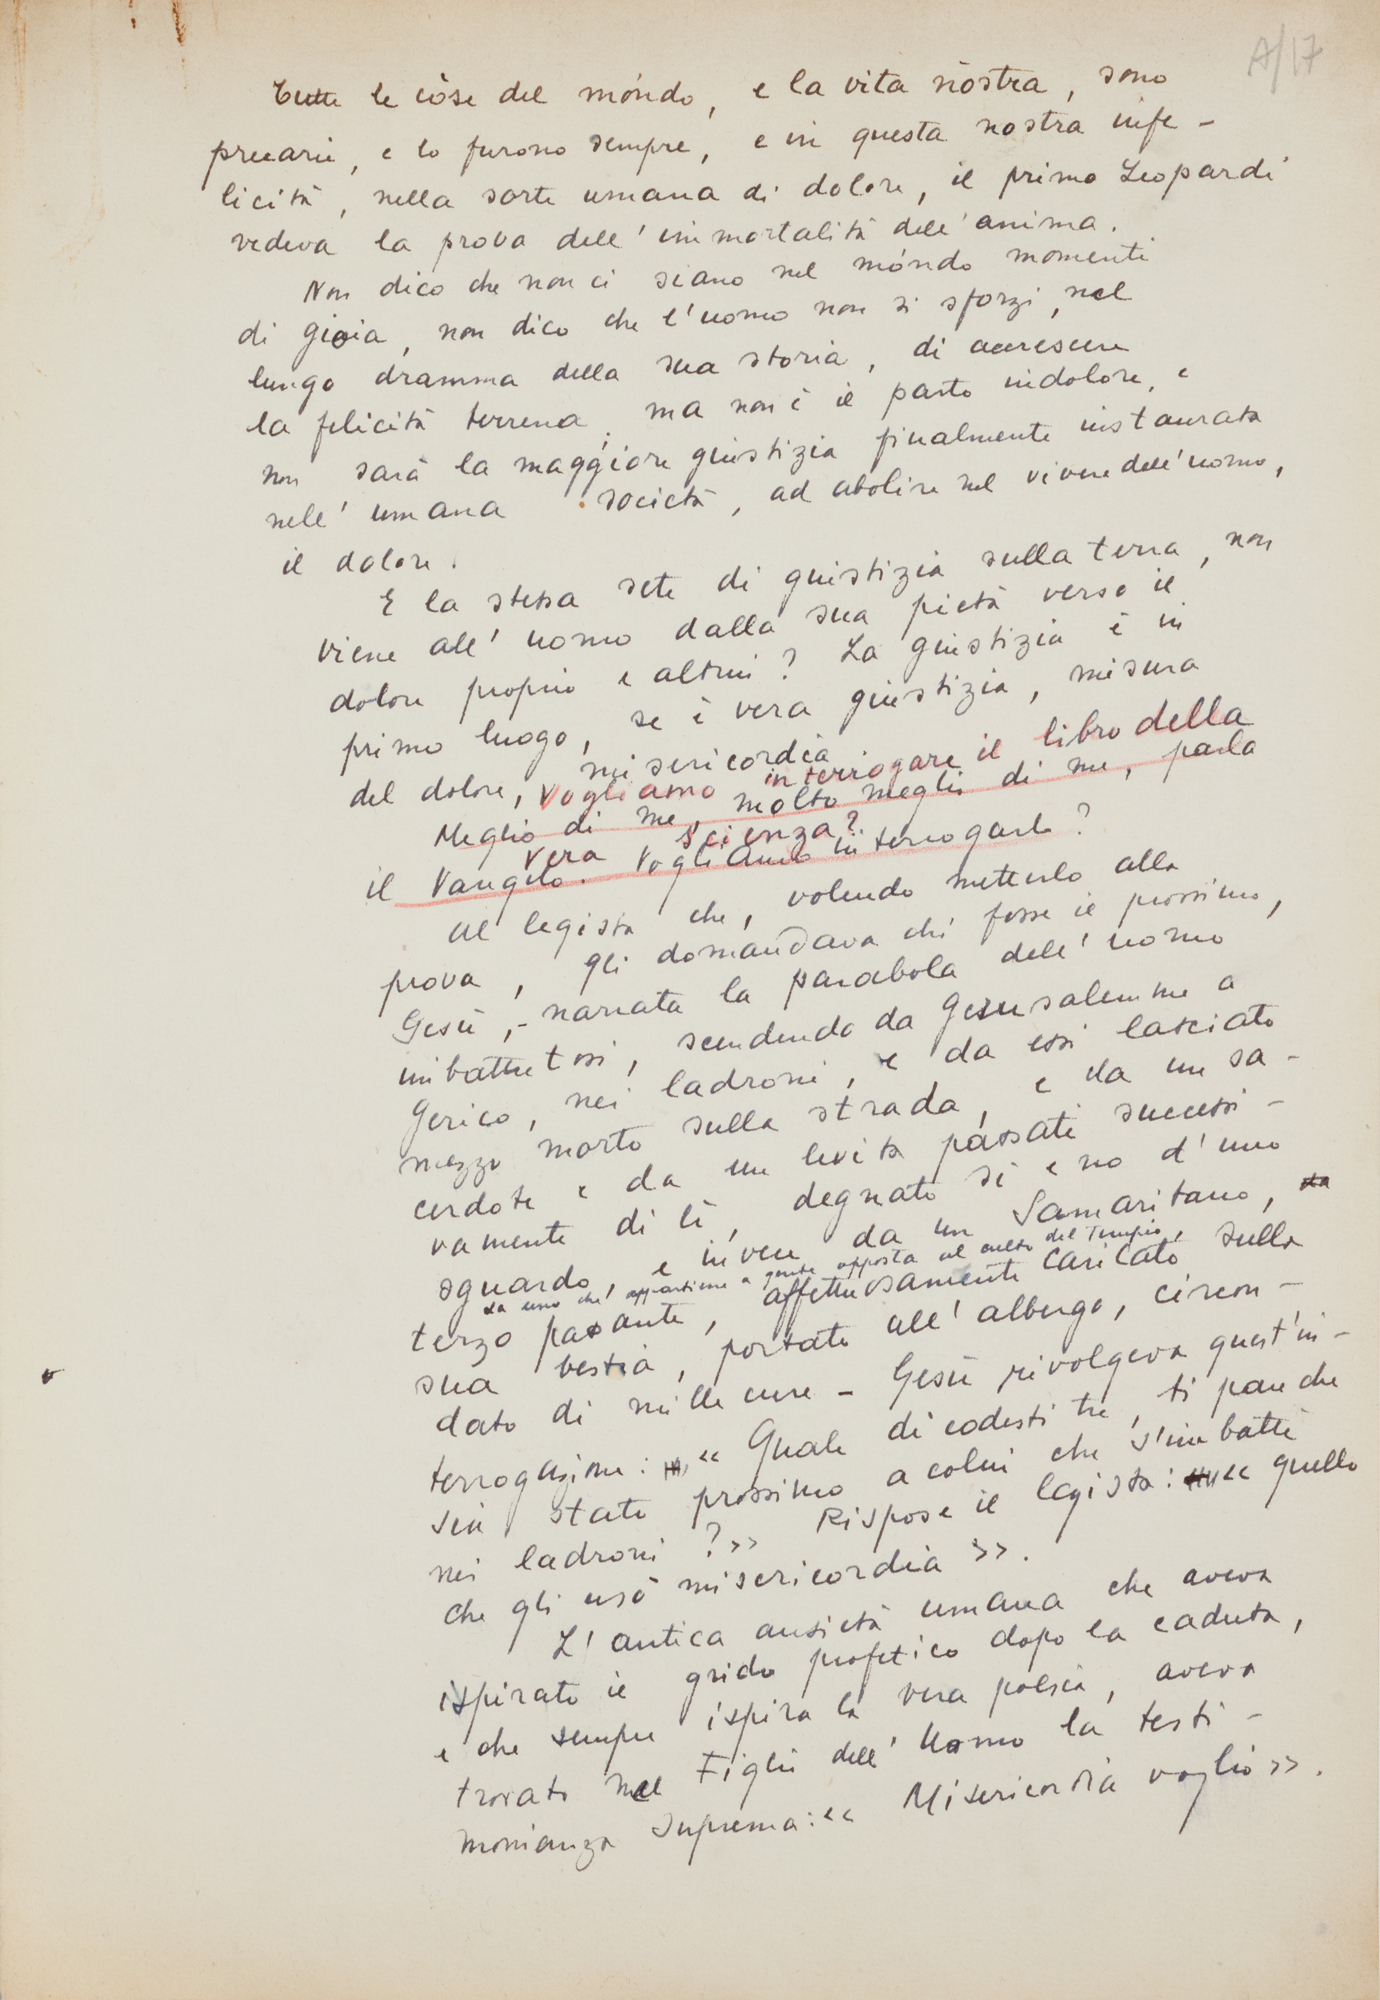 A/17
Tutte le còse del móndo, e la vita nòstra, sono
precarie, e lo furono sempre, e in questa nostra infe-
licità, nella sorte umana di dolore, il primo Leopardi
vedeva la prova dell'immortalità dell'anima.
Non dico che non ci siano nel móndo momenti
di gioia, non dico che l'uomo non si sforzi, nel
lungo dramma della sua storia, di accrescere
la felicità terrena, ma non è il parto indolore, e
non sarà la maggiore giustizia finalmente instaurata
nell'umana società, ad abolire nel vivere dell'uomo,
il dolore.
E la stessa sete di giustizia sulla terra, non
viene all'uomo dalla sua pietà verso il
dolore proprio e altrui? La giustizia è in
primo luogo, se è vera giustizia, misura
del dolore, misericordia
Vogliamo interrogare il libro della
Meglio di me, molto meglio di me, parla
vera scienza?
il Vangelo. Vogliamo interrogarlo?
Al legista che, volendo metterlo alla
prova, gli domandava chi fosse il prossimo,
Gesù, - narrata la parabola dell'uomo
imbattutosi, scendendo da Gerusalemme a
Gerico, nei ladroni, e da essi lasciato
mezzo morto sulla strada, e da un sa-
cerdote e da un levita passati successi-
vamente di lì, degnato sì e no d'uno
sguardo, e invece da un Samaritano, da
da uno che appartiene a gente opposta al culto del Tempio,
terzo passante, affettuosamente caricato sulla
sua bestia, portato all'albergo, circon-
dato di mille cure - Gesù rivolgeva quest'in-
terrogazione: «Quale di codesti tre, ti pare che
sia stato prossimo a colui che s'imbatté
nei ladroni?» Rispose il legista: «quello
che gli usò misericordia».
L'antica ansietà umana che aveva
ispirato il grido profetico dopo la caduta,
e che sempre ispira la vera poesia, aveva
trovato nel Figlio dell'Uomo la testi-
monianza suprema: «Misericordia voglio».